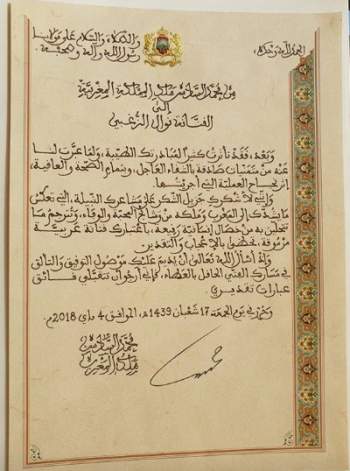 الحمد لله وحده
والصلاة والسلام على مولانا
رسول الله وآله وصحبه
من محمد السادس ملك المملكة المغربية
إلى
الفنانة نوال الزغبي
وبعد، فقد تأثرت كثيرا لمبادرتك الطيبة، ولما عبرت لنا
عنه من متمنيات صادقة بالشفاء العاجل، وبتمام الصحة والعافية،
إثر نجاح العملية التي أجريتها.
وإني لأشكرك جزيل الشكر على مشاعرك النبيلة، التي تعكس
ما يشدك إلى المغرب وملكه من وشائج المحبة والوفاء، وتترجم ما
تتحلين به من خصال إنسانية رفيعة، باعتبارك فنانة عربية
مرموقة، تحظى بالإعجاب والتقدير.
وإذ أسأل الله تعالى أن يديم عليك موصول التوفيق والتألق
في مسارك الفني الحافل بالعطاء، لأرجو أن تتقبلي فائق
عبارات تقديري.
وحرر في يوم الجمعة 17 شعبان 1439هـ، الموافق 4 ماي 2018م.
محمد السادس
ملك المغرب